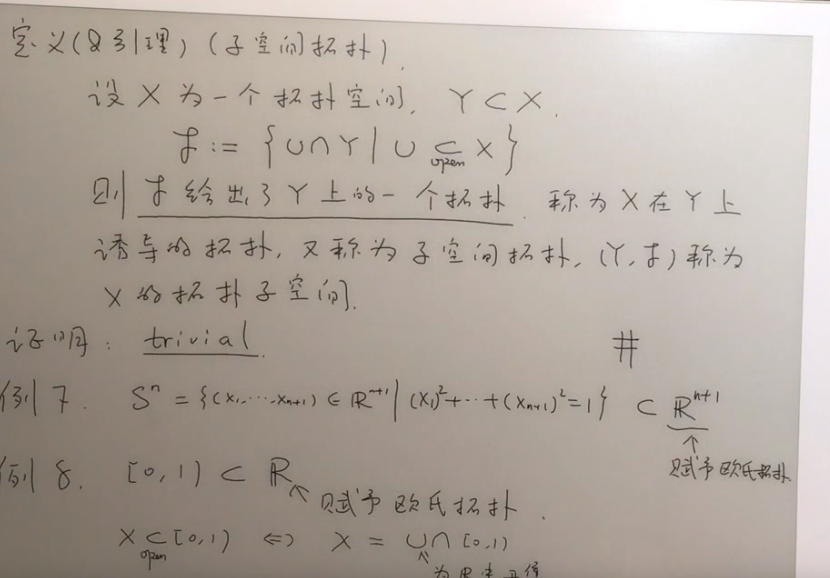 定义(及引理) (子空间拓扑).
设 X 为一个拓扑空间, Y ⊂ X.
𝒯 := { U∩Y | U ⊂ X }
open
则 𝒯 给出了 Y 上的一个拓扑. 称为 X 在 Y 上
诱导的拓扑, 又称为子空间拓扑, (Y, 𝒯) 称为
X 的拓扑子空间.
证明: trivial. #
例 7. Sⁿ = {(x₁,⋯,xₙ₊₁) ∈ ℝⁿ⁺¹ | (x₁)²+⋯+(xₙ₊₁)²=1} ⊂ ℝⁿ⁺¹
↑
赋予欧氏拓扑
例 8. [0,1) ⊂ ℝ
↖ 赋予欧氏拓扑.
X ⊂ [0,1) ⇔ X = U∩[0,1)
open ↖
为 ℝ 中开